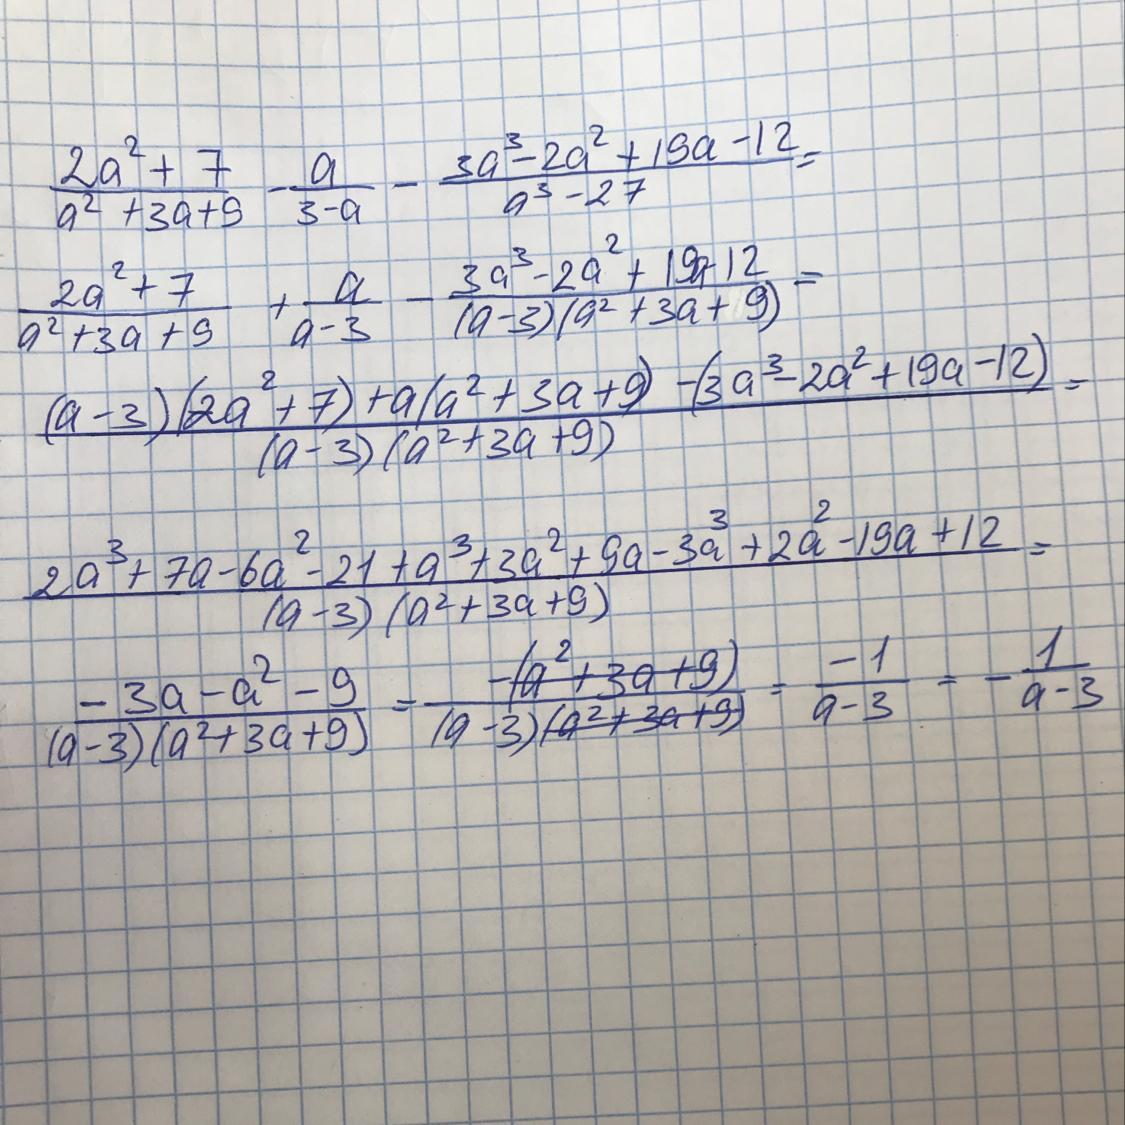 (2a² + 7)/(a² + 3a + 9) - a/(3 - a) - (3a³ - 2a² + 19a - 12)/(a³ - 27) =
(2a² + 7)/(a² + 3a + 9) + a/(a - 3) - (3a³ - 2a² + 19a - 12)/((a - 3)(a² + 3a + 9)) =
((a - 3)(2a² + 7) + a(a² + 3a + 9) - (3a³ - 2a² + 19a - 12))/((a - 3)(a² + 3a + 9)) =
(2a³ + 7a - 6a² - 21 + a³ + 3a² + 9a - 3a³ + 2a² - 19a + 12)/((a - 3)(a² + 3a + 9)) =
(- 3a - a² - 9)/((a - 3)(a² + 3a + 9)) = (-(a² + 3a + 9))/((a - 3)(a² + 3a + 9)) = (-1)/(a - 3) = - 1/(a - 3)